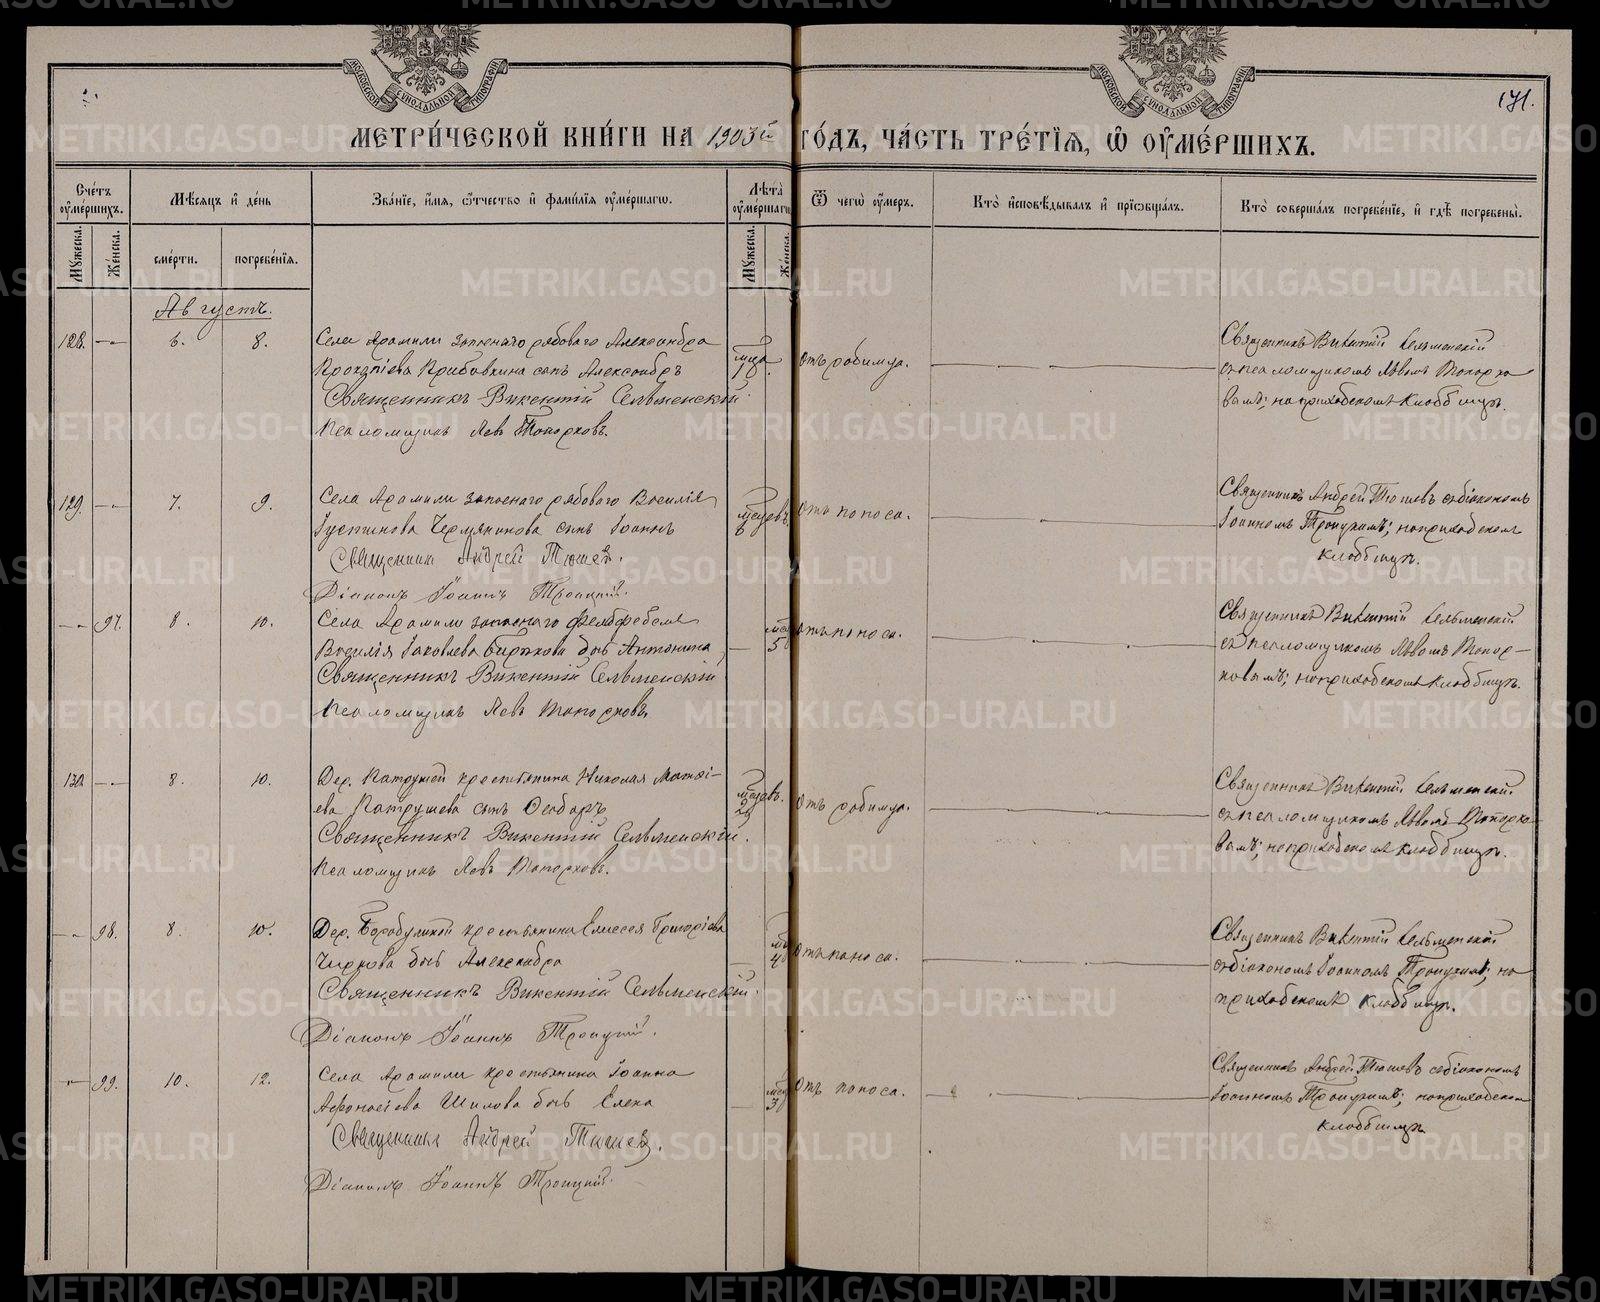 171.
МОСКОВСКОЙ СУНОДАЛЬНОЙ ТИПОГРАФІИ
МОСКОВСКОЙ СУНОДАЛЬНОЙ ТИПОГРАФІИ
МЕТРИ́ЧЕСКОЙ КНИ́ГИ НА 1903й ГО́ДЪ, ЧА́СТЬ ТРЕ́ТІѦ, Ѡ҆ ОУ҆МЕ́РШИХЪ.
Сче́тъ ᲂумершихъ.
Мѣсяцъ и день
Зва́нїе, и҆́мѧ, ѻ҆́тчество и҆ фами́лїѧ ᲂу҆ме́ршагѡ.
Лѣта̀ ᲂу҆ме́ршагѡ
Ѿ чегѡ̀ ᲂу҆́меръ.
Кто̀ и҆сповѣ́дывалъ и҆ прїѡбща́лъ.
Кто̀ соверша́лъ погребе́нїе, и҆ гдѣ̀ погребены̀.
Мꙋ́жеска. Же́нска.
сме́рти. погребе́нїѧ.
Мꙋ́жеска. Же́нска.
Августъ.
128. 6. 8. Села Арамили запаснаго рядового Александра
сынъ Александръ
Священникъ Викентій Сельменскій
Псаломщикъ Левъ Топорковъ.
1
отъ родимца.
Священникъ Викентій Сельменскій
съ псаломщикомъ Львомъ Топорко
вымъ; на приходскомъ кладбищѣ.
129. 7. 9. Села Арамили запаснаго рядового Василія
Іустинова сынъ Іоаннъ
Священникъ Андрей Тюшевъ.
Діаконъ Іоаннъ Троицкій.
мѣсяцевъ
отъ поноса.
Священникъ Андрей Тюшевъ съ діакономъ
Іоанномъ Троицкимъ; на приходскомъ
кладбищѣ.
97. 8. 10. Села Арамили запаснаго фельдфебеля
Василія Іаковлева Бирюкова дочь Антонина
Священникъ Викентій Сельменскій
Псаломщикъ Левъ Топорковъ
5
отъ поноса.
Священникъ Викентій Сельменскій
съ псаломщикомъ Львомъ Топор-
ковымъ; на приходскомъ кладбищѣ.
130 8. 10. Дер. Патрушей крестьянина Николая Матѳі-
ева Патрушева сынъ Ѳеодоръ
Священникъ Викентій Сельменскій.
Псаломщикъ Левъ Топорковъ.
отъ родимца.
Священникъ Викентій Сельменскій
съ псаломщикомъ Львомъ Топорко-
вымъ; на приходскомъ кладбищѣ.
98. 8. 10. Дер. Бородулиной крестьянина Елисея Григоріева
Чиркова дочь Александра
Священникъ Викентій Сельменскій.
Діаконъ Іоаннъ Троицкій.
4
отъ поноса.
Священникъ Викентій Сельменскій
съ діакономъ Іоанномъ Троицкимъ; на
приходскомъ кладбищѣ.
99. 10. 12. Села Арамили крестьянина Іоанна
Аѳонасіева Шилова дочь Елена
Священникъ Андрей Тюшевъ.
Діаконъ Іоаннъ Троицкій.
3
отъ поноса.
Священникъ Андрей Тюшевъ съ діакономъ
Іоанномъ Троицкимъ; на приходскомъ
кладбищѣ.
METRIKI.GASO-URAL.RU